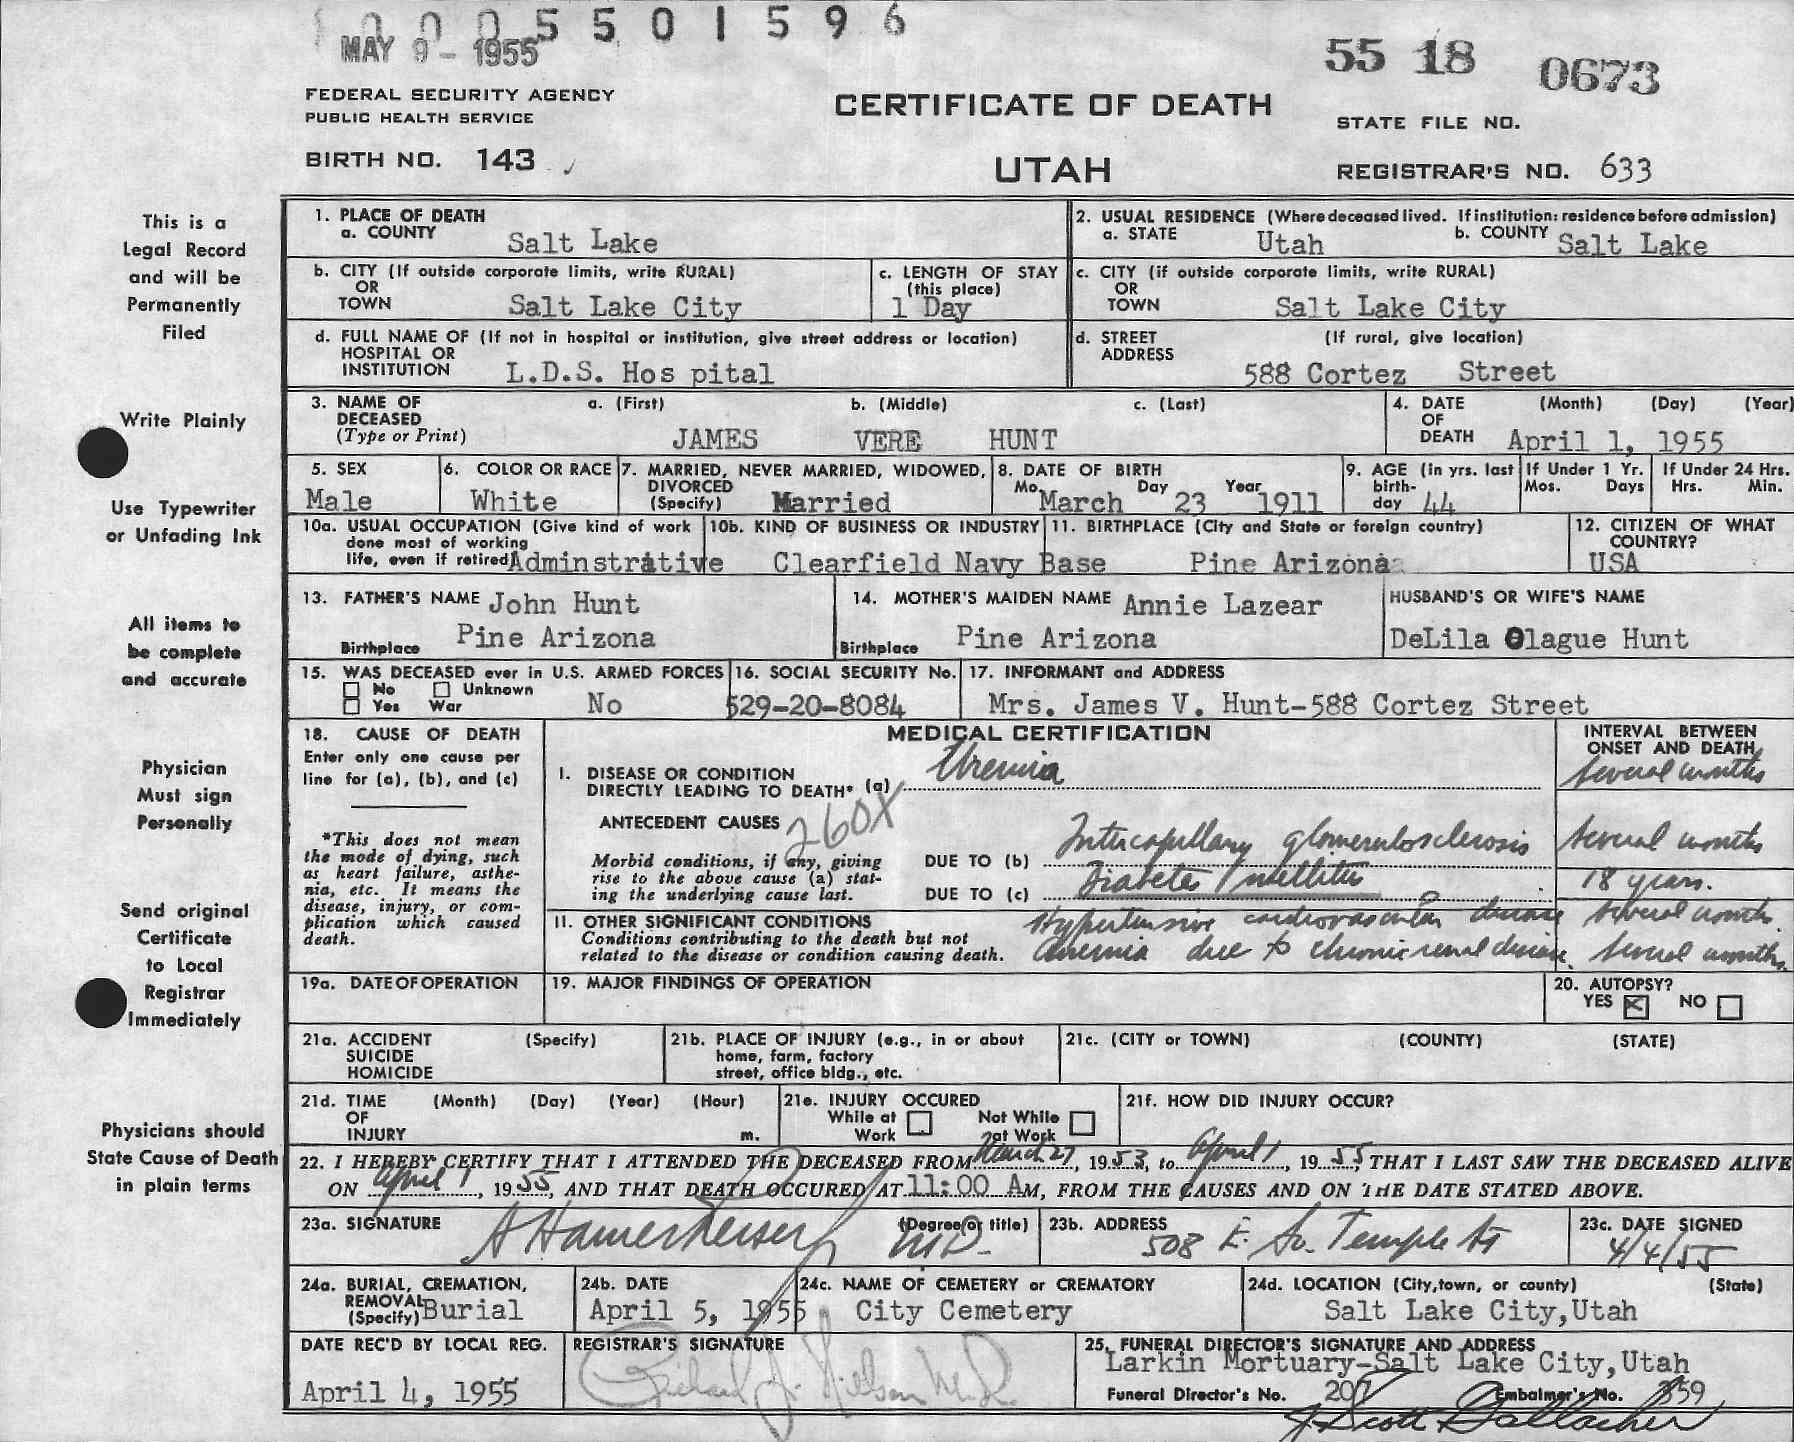 1000 5501596
MAY 9 - 1955
55 18 0673
FEDERAL SECURITY AGENCY
PUBLIC HEALTH SERVICE
CERTIFICATE OF DEATH
STATE FILE NO.
BIRTH NO. 143
UTAH
REGISTRAR'S NO. 633
This is a
Legal Record
and will be
Permanently
Filed
Write Plainly
Use Typewriter
or Unfading Ink
All items to
be complete
and accurate
Physician
Must sign
Personally
Send original
Certificate
to Local
Registrar
Immediately
Physicians should
State Cause of Death
in plain terms
1. PLACE OF DEATH
a. COUNTY Salt Lake
2. USUAL RESIDENCE (Where deceased lived. If institution: residence before admission)
a. STATE Utah b. COUNTY Salt Lake
b. CITY (If outside corporate limits, write RURAL)
OR
TOWN Salt Lake City
c. LENGTH OF STAY
(this place)
1 Day
c. CITY (if outside corporate limits, write RURAL)
OR
TOWN Salt Lake City
d. FULL NAME OF (If not in hospital or institution, give street address or location)
HOSPITAL OR
INSTITUTION L.D.S. Hos pital
d. STREET (If rural, give location)
ADDRESS
588 Cortez Street
3. NAME OF a. (First) b. (Middle) c. (Last)
DECEASED
(Type or Print) JAMES VERE HUNT
4. DATE (Month) (Day) (Year)
OF
DEATH April 1, 1955
5. SEX
Male
6. COLOR OR RACE
White
7. MARRIED, NEVER MARRIED, WIDOWED,
DIVORCED
(Specify) Married
8. DATE OF BIRTH
Mo. Day Year
March 23 1911
9. AGE (in yrs. last
birth-
day 44
If Under 1 Yr.
Mos. Days
If Under 24 Hrs.
Hrs. Min.
10a. USUAL OCCUPATION (Give kind of work
done most of working
life, even if retired) Adminstrative
10b. KIND OF BUSINESS OR INDUSTRY
Clearfield Navy Base
11. BIRTHPLACE (City and State or foreign country)
Pine Arizona
12. CITIZEN OF WHAT
COUNTRY?
USA
13. FATHER'S NAME John Hunt
Birthplace Pine Arizona
14. MOTHER'S MAIDEN NAME Annie Lazear
Birthplace Pine Arizona
HUSBAND'S OR WIFE'S NAME
DeLila Olague Hunt
15. WAS DECEASED ever in U.S. ARMED FORCES
No Unknown
Yes War No
16. SOCIAL SECURITY No.
529-20-8084
17. INFORMANT and ADDRESS
Mrs. James V. Hunt-588 Cortez Street
18. CAUSE OF DEATH
Enter only one cause per
line for (a), (b), and (c)
*This does not mean
the mode of dying, such
as heart failure, asthe-
nia, etc. It means the
disease, injury, or com-
plication which caused
death.
MEDICAL CERTIFICATION
INTERVAL BETWEEN
ONSET AND DEATH
I. DISEASE OR CONDITION
DIRECTLY LEADING TO DEATH* (a) Uremia several months
ANTECEDENT CAUSES 260X
Morbid conditions, if any, giving
rise to the above cause (a) stat-
ing the underlying cause last.
DUE TO (b) Intercapillary glomerulosclerosis several months
DUE TO (c) Diabetes mellitus 18 years.
II. OTHER SIGNIFICANT CONDITIONS
Conditions contributing to the death but not
related to the disease or condition causing death.
Hypertensive cardiovascular disease several months.
Anemia due to chronic renal disease. several months.
19a. DATE OF OPERATION
19. MAJOR FINDINGS OF OPERATION
20. AUTOPSY?
YES NO
21a. ACCIDENT (Specify)
SUICIDE
HOMICIDE
21b. PLACE OF INJURY (e.g., in or about
home, farm, factory
street, office bldg., etc.
21c. (CITY or TOWN) (COUNTY) (STATE)
21d. TIME (Month) (Day) (Year) (Hour)
OF
INJURY m.
21e. INJURY OCCURED
While at Not While
Work at Work
21f. HOW DID INJURY OCCUR?
22. I HEREBY CERTIFY THAT I ATTENDED THE DECEASED FROM March 27, 1953, to April 1, 1955, THAT I LAST SAW THE DECEASED ALIVE
ON April 1, 1955, AND THAT DEATH OCCURED AT 11:00 AM, FROM THE CAUSES AND ON THE DATE STATED ABOVE.
23a. SIGNATURE (Degree or title) MD.
23b. ADDRESS
508 E. So. Temple St
23c. DATE SIGNED
4/4/55
24a. BURIAL, CREMATION,
REMOVAL
(Specify) Burial
24b. DATE
April 5, 1955
24c. NAME OF CEMETERY or CREMATORY
City Cemetery
24d. LOCATION (City,town, or county) (State)
Salt Lake City,Utah
DATE REC'D BY LOCAL REG.
April 4, 1955
REGISTRAR'S SIGNATURE
Richard J. Nielson M.D.
25. FUNERAL DIRECTOR'S SIGNATURE AND ADDRESS
Larkin Mortuary-Salt Lake City,Utah
Funeral Director's No. 207 Embalmer's No. 359
J Scott Gallacher